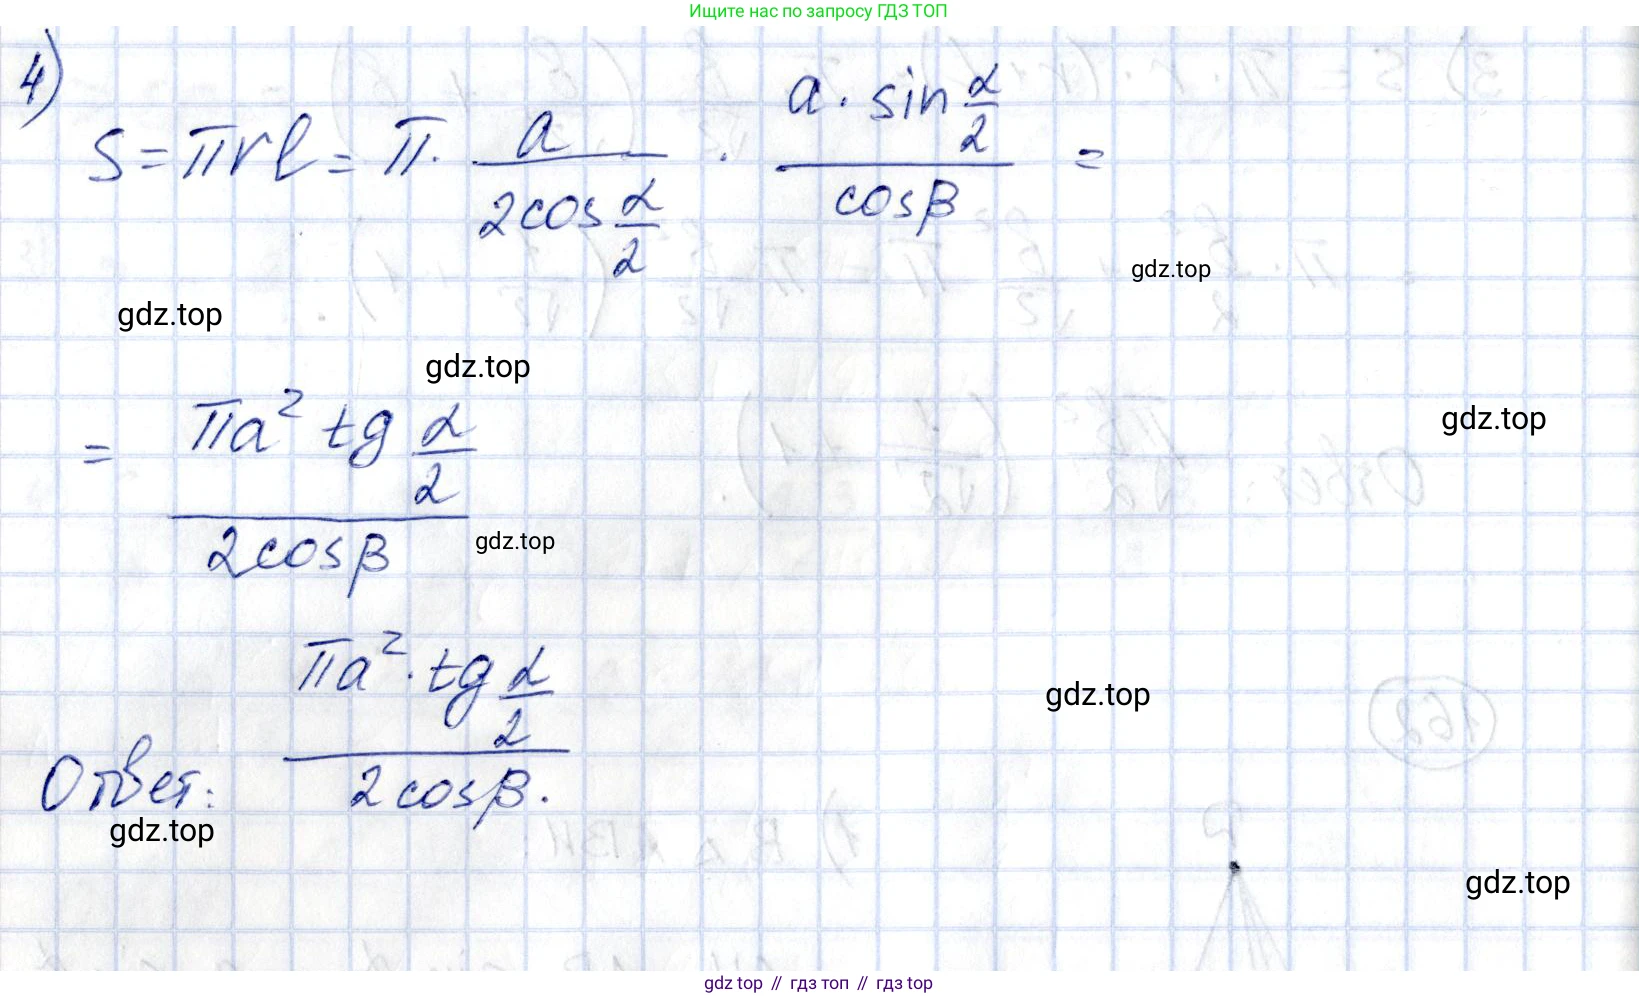 Ищите нас по запросу ГДЗ ТОП
4)
S = πrl = π · a / (2cos α/2) · (a · sin α/2) / cosβ =
gdz.top
gdz.top
gdz.top
gdz.top
= (πa² tg α/2) / (2cosβ)
gdz.top
gdz.top
Ответ: (πa² · tg α/2) / (2cosβ).
gdz.top
gdz.top
gdz top // гдз топ // гдз top